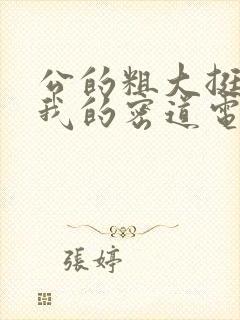 公的粗大挺
我的密道電
張婷